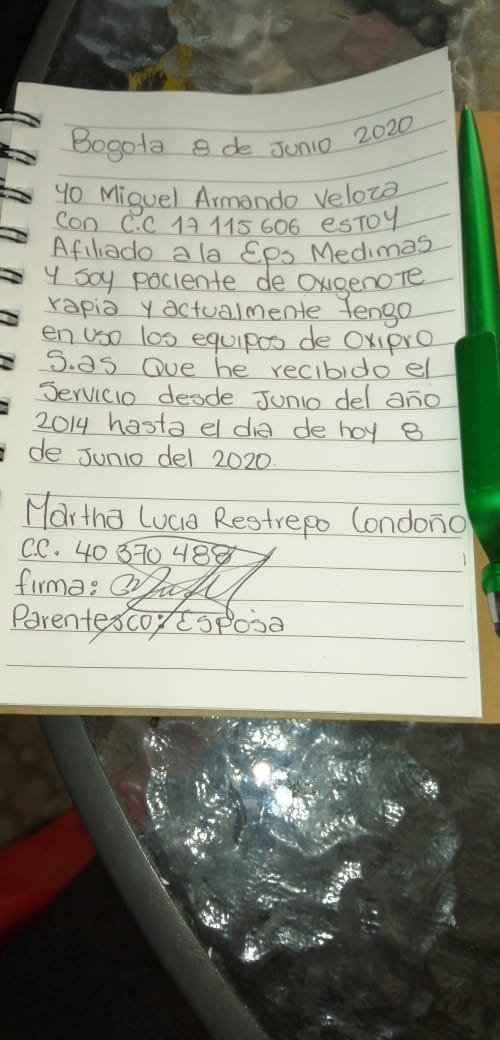 Bogota 8 de Junio 2020
yo Miguel Armando Veloza
Con C.C 17 115 606 esTOY
Afiliado a la Eps Medimas
Y soy paciente de Oxigenote
rapia y actualmente tengo
en uso los equipos de Oxipro
S.as Que he recibido el
Servicio desde Junio del año
2014 hasta el dia de hoy 8
de Junio del 2020.
Martha Lucia Restrepo Londoño
C.C. 40 370 488
firma:
Parentesco: Esposa